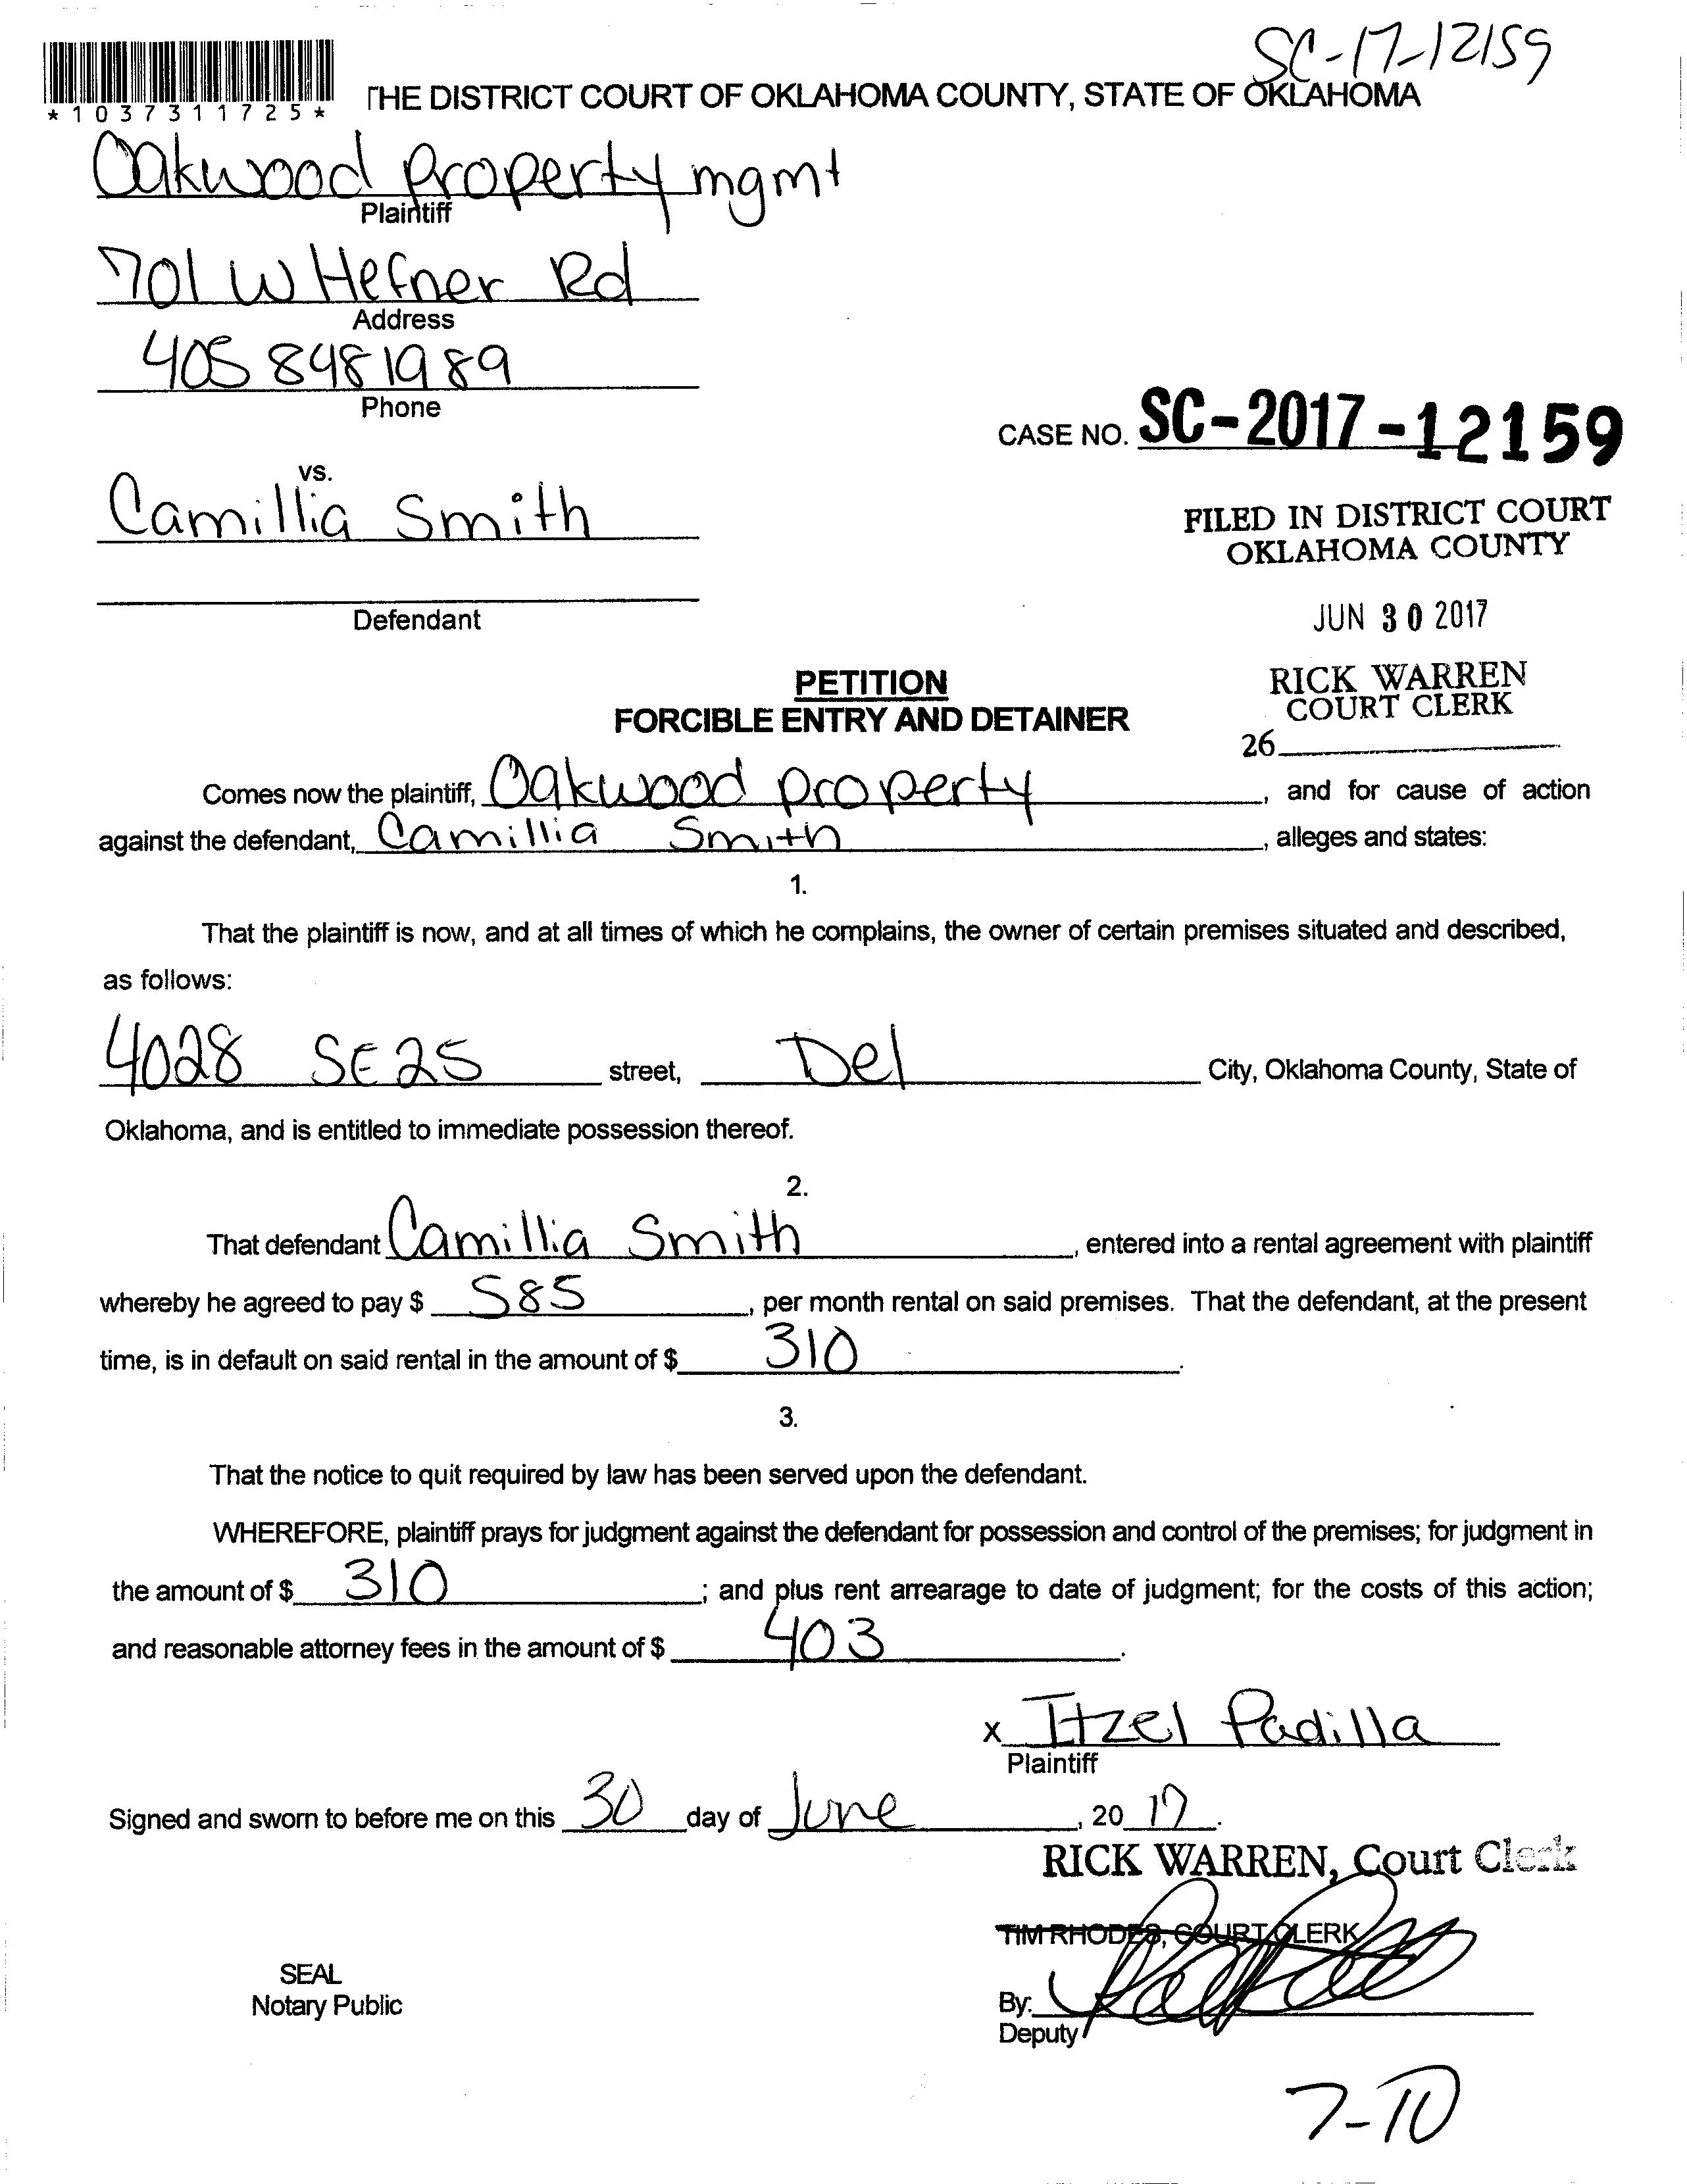 SC-17-12159
*1037311725*
THE DISTRICT COURT OF OKLAHOMA COUNTY, STATE OF OKLAHOMA
Oakwood Property mgmt
Plaintiff
701 W Hefner Rd
Address
405 848 1989
Phone
CASE NO. SC-2017-12159
vs.
Camillia Smith
FILED IN DISTRICT COURT
OKLAHOMA COUNTY
Defendant
JUN 30 2017
PETITION
FORCIBLE ENTRY AND DETAINER
RICK WARREN
COURT CLERK
26
Comes now the plaintiff, Oakwood property, and for cause of action
against the defendant, Camillia Smith, alleges and states:
1.
That the plaintiff is now, and at all times of which he complains, the owner of certain premises situated and described,
as follows:
4028 SE 25 street, Del City, Oklahoma County, State of
Oklahoma, and is entitled to immediate possession thereof.
2.
That defendant Camillia Smith, entered into a rental agreement with plaintiff
whereby he agreed to pay $ 585, per month rental on said premises. That the defendant, at the present
time, is in default on said rental in the amount of $ 310.
3.
That the notice to quit required by law has been served upon the defendant.
WHEREFORE, plaintiff prays for judgment against the defendant for possession and control of the premises; for judgment in
the amount of $ 310; and plus rent arrearage to date of judgment; for the costs of this action;
and reasonable attorney fees in the amount of $ 403.
x Itzel Padilla
Plaintiff
Signed and sworn to before me on this 30 day of June, 20 17.
RICK WARREN, Court Clerk
TIM RHODES, COURT CLERK
SEAL
Notary Public
By:
Deputy
7-10